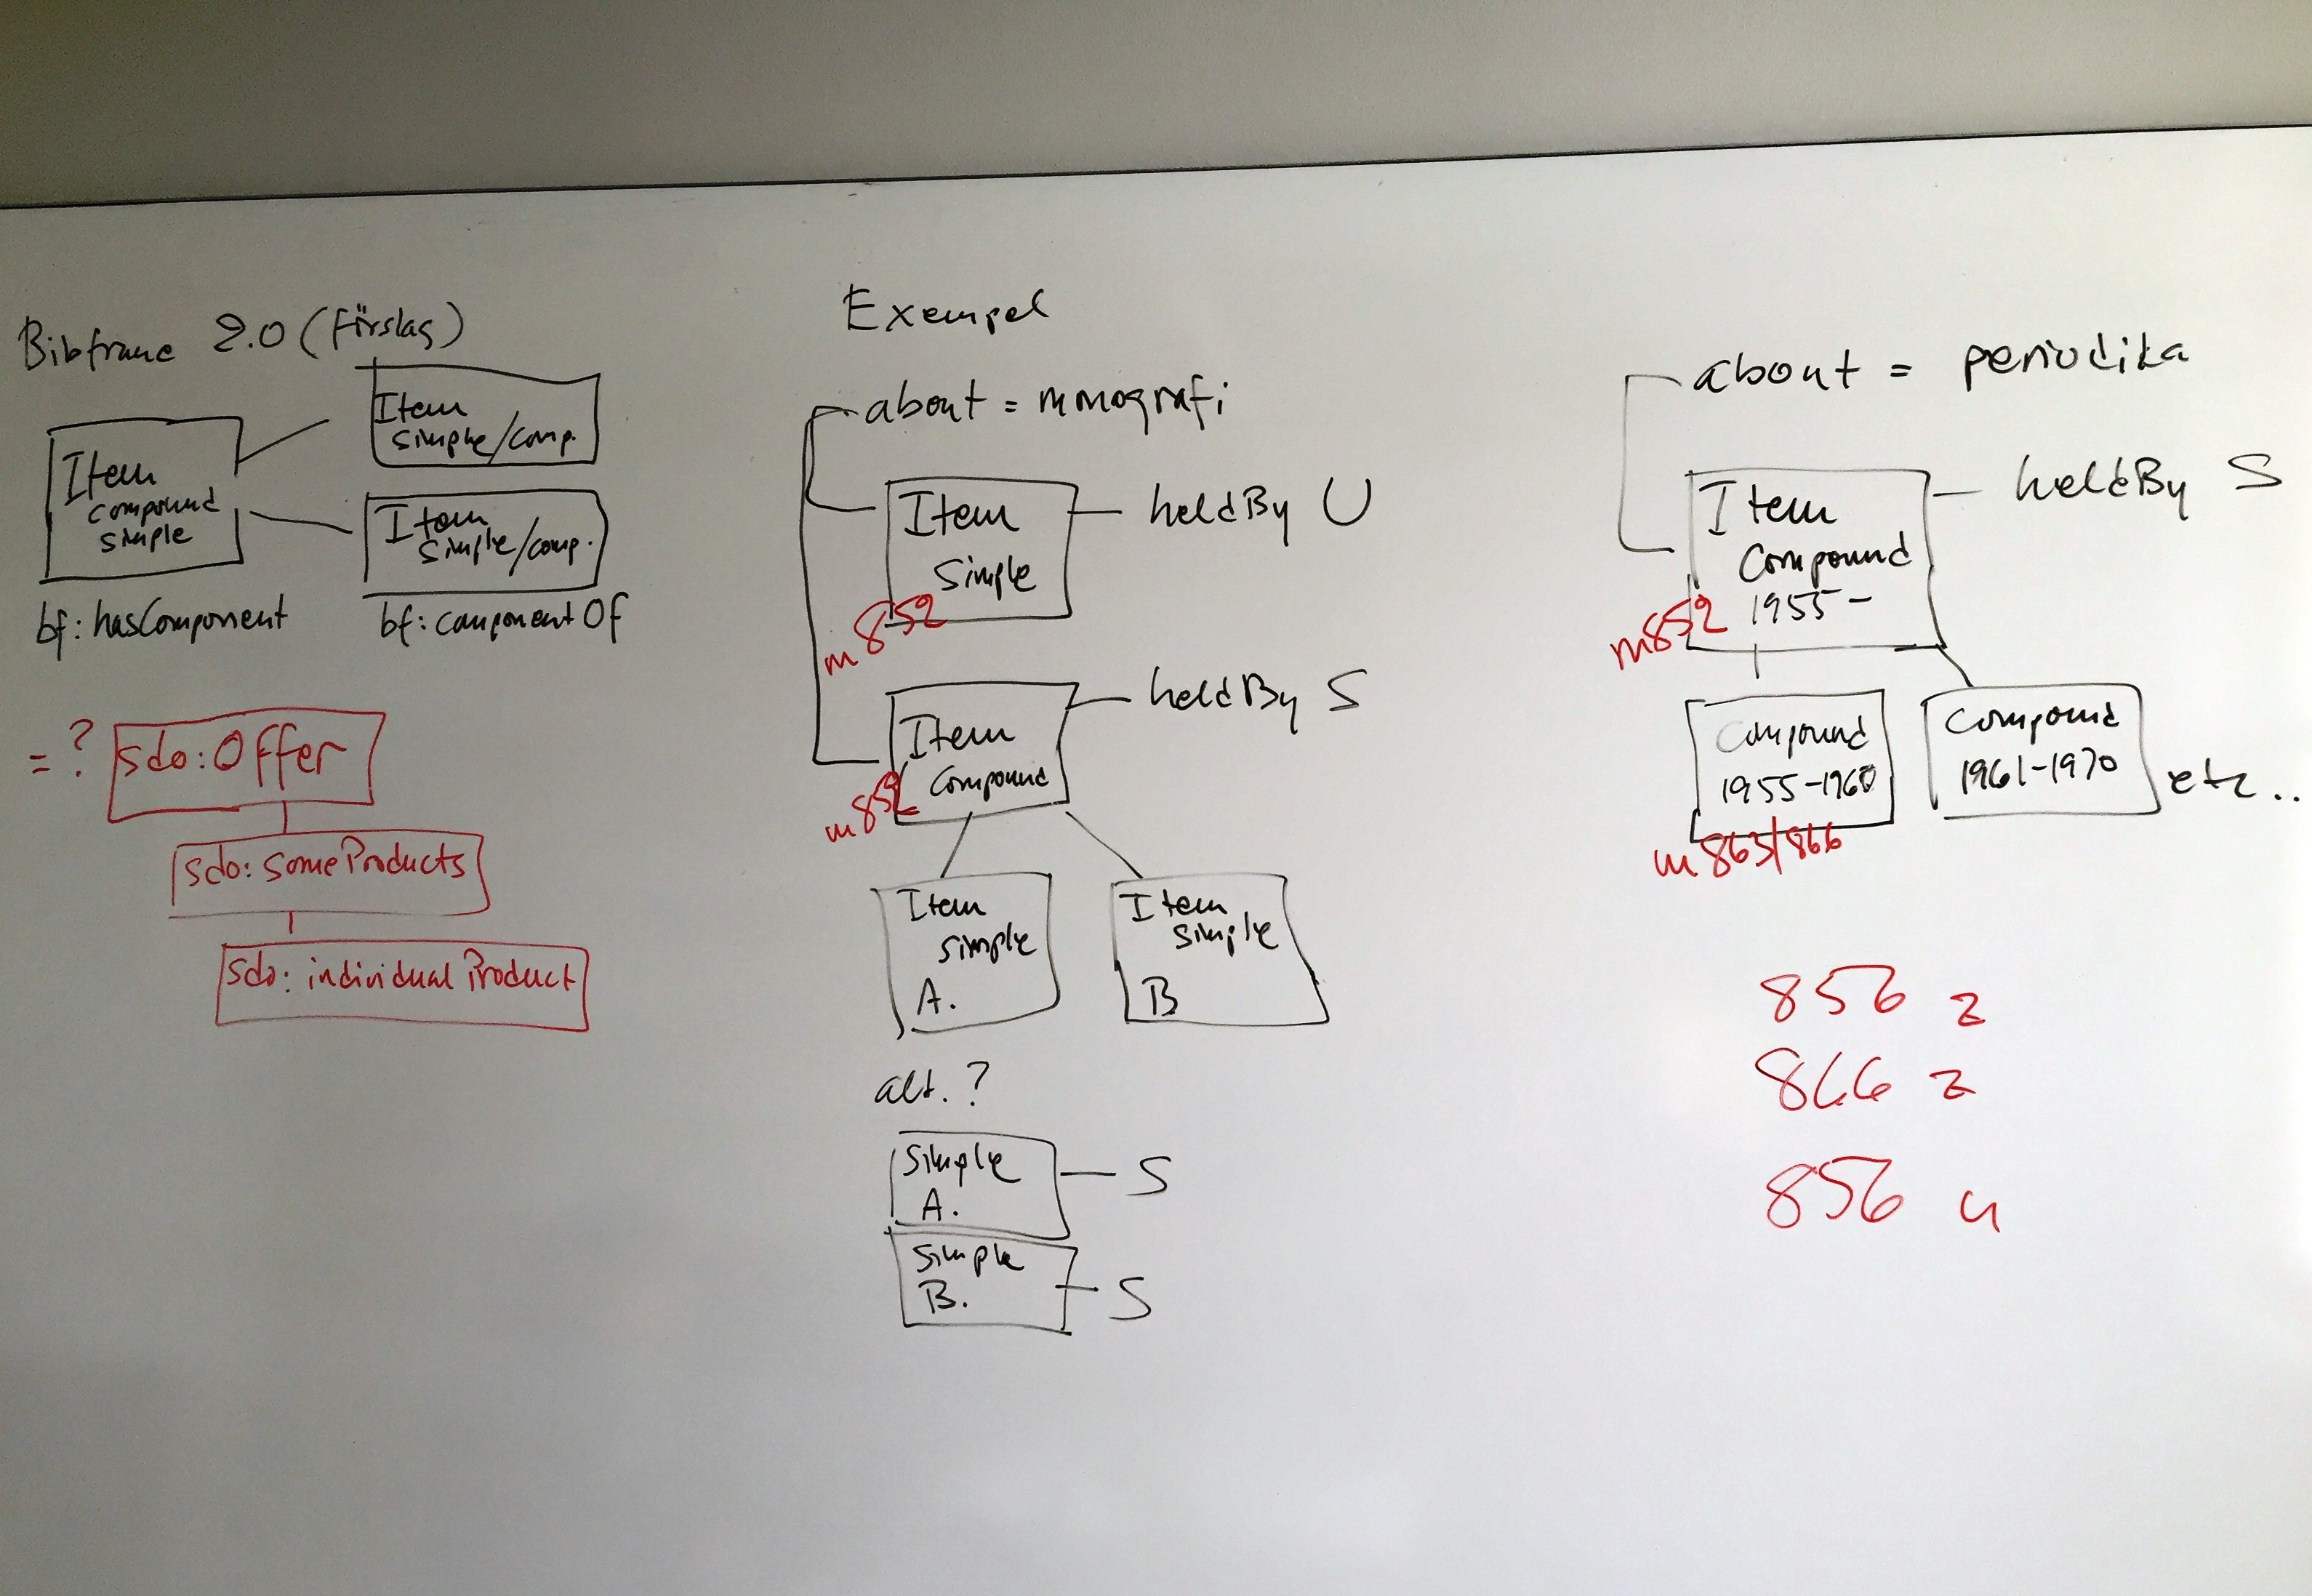 Bibframe 2.0 (Förslag)
Item
compound
simple
Item
simple/comp.
Item
simple/comp.
bf: hasComponent
bf: componentOf
= ?
sdo: Offer
sdo: someProducts
sdo: individualProduct
Exempel
about = monografi
Item
Simple
heldBy U
m852
Item
Compound
heldBy S
m852
Item
simple
A.
Item
simple
B
alt. ?
simple
A.
S
simple
B.
S
about = periodika
Item
Compound
1955-
heldBy S
m852
Compound
1955-1960
m863/866
Compound
1961-1970
etc..
856 z
866 z
856 u